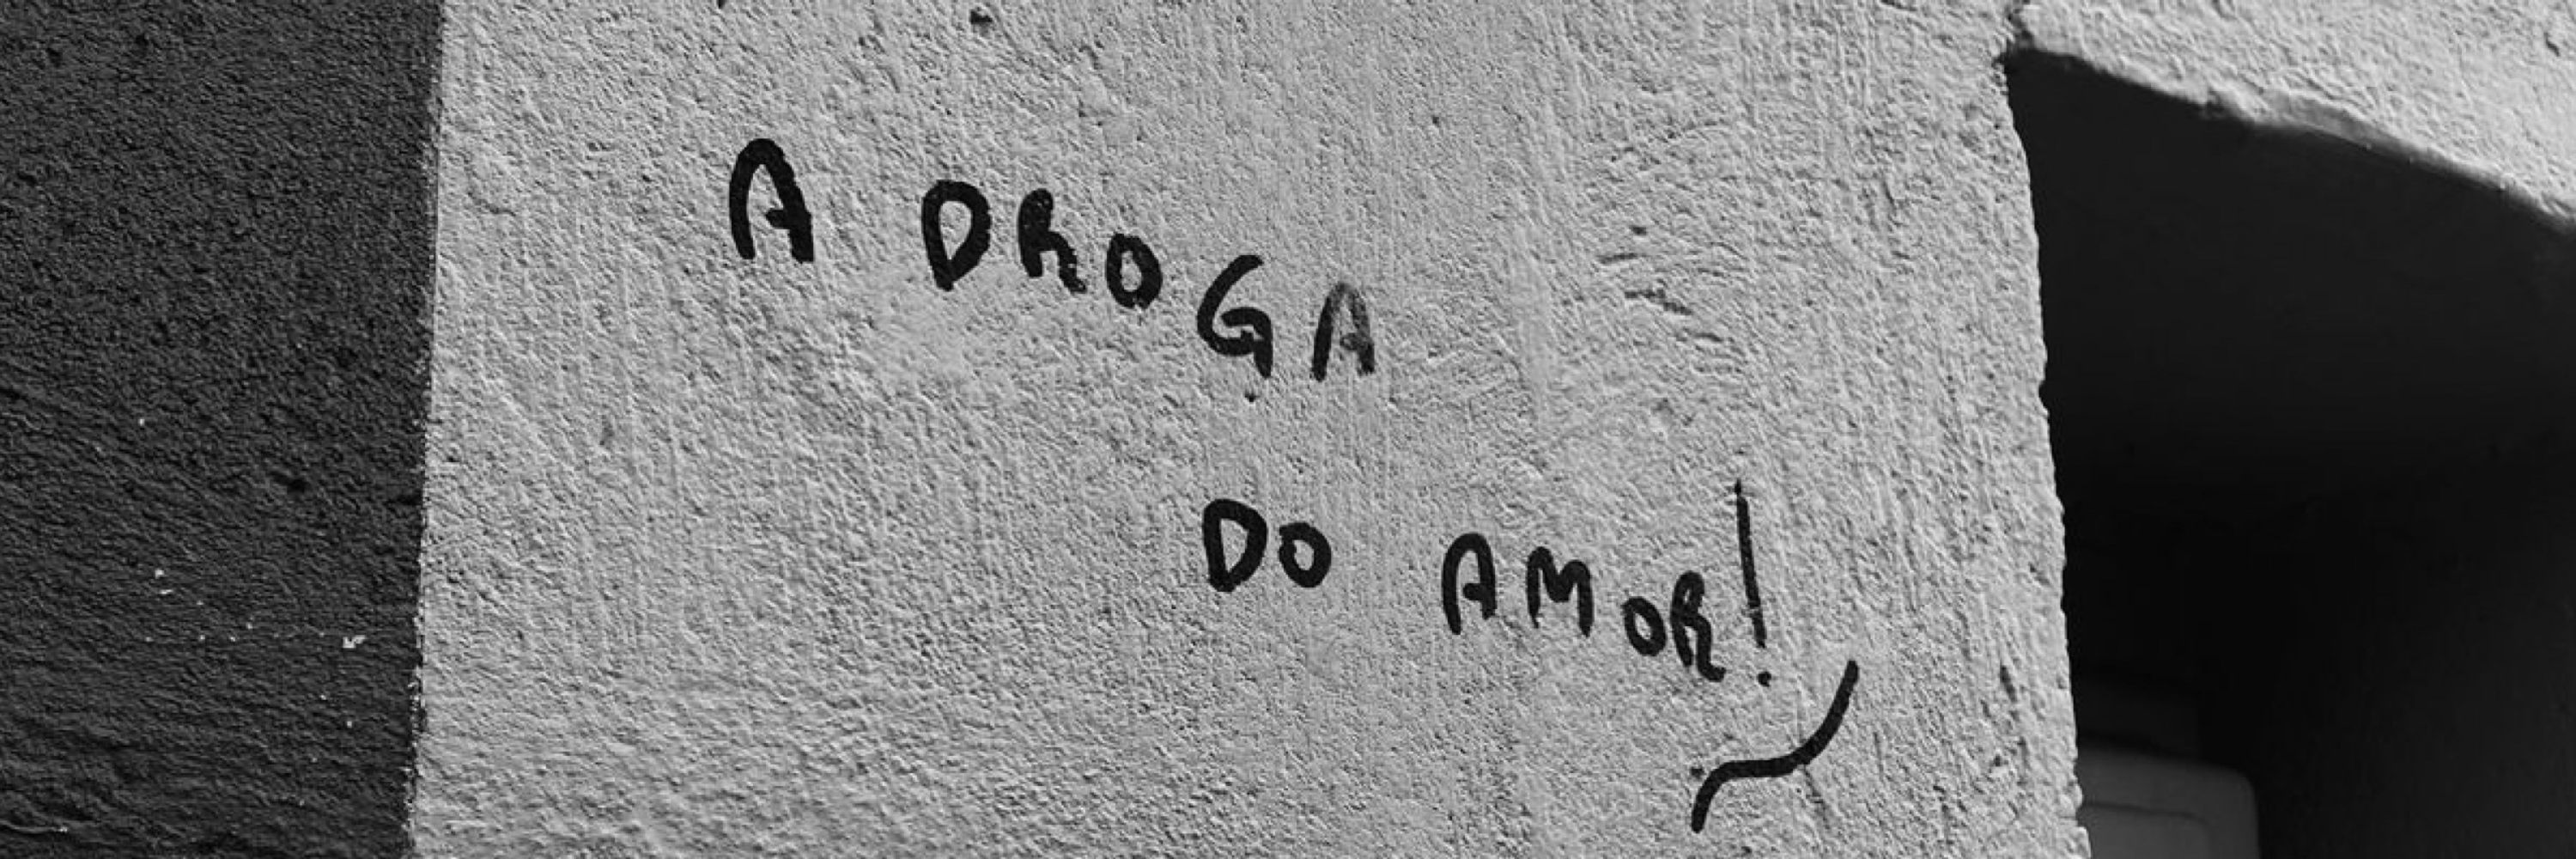 A DROGA
DO AMOR!